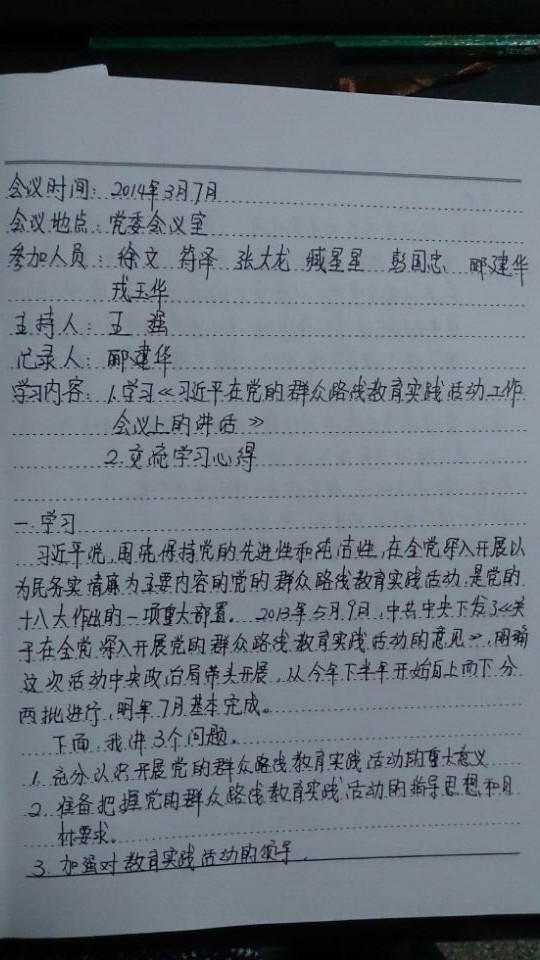 会议时间：2014年3月7月
会议地点：党委会议室
参加人员：徐文 符泽 张大龙 臧星星 彭国忠 郦建华
戎玉华
主持人：王强
记录人：郦建华
学习内容：1.学习《习近平在党的群众路线教育实践活动工作
会议上的讲话》
2.交流学习心得
一.学习
习近平说，围绕保持党的先进性和纯洁性，在全党深入开展以
为民务实清廉为主要内容的党的群众路线教育实践活动，是党的
十八大作出的一项重大部署。2013年5月9日，中共中央下发了《关
于在全党深入开展党的群众路线教育实践活动的意见》，明确
这次活动中央政治局带头开展，从今年下半年开始自上而下分
两批进行，明年7月基本完成。
下面，我讲3个问题。
1.充分认识开展党的群众路线教育实践活动的重大意义
2.准备把握党的群众路线教育实践活动的指导思想和目
标要求。
3.加强对教育实践活动的领导.